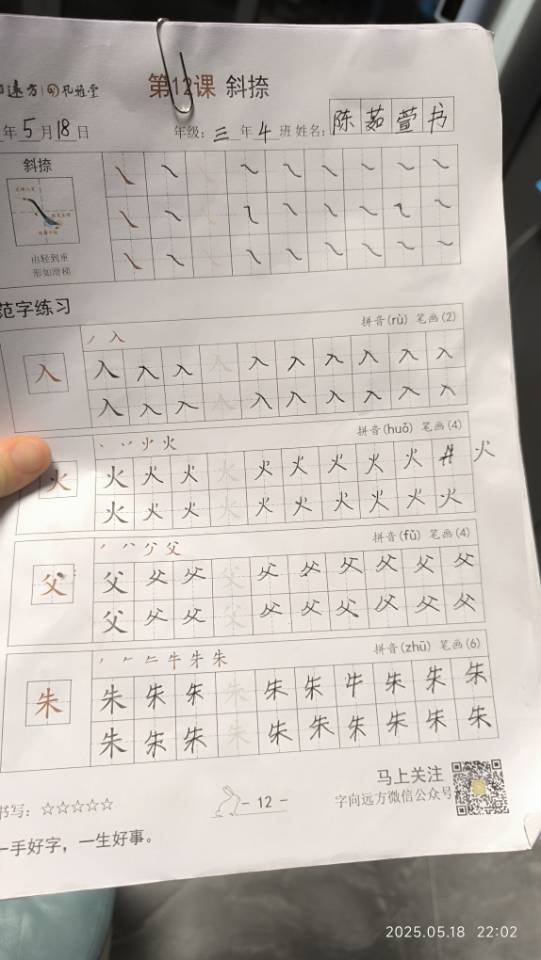 远方 孔迹堂
第12课 斜捺
年5月18日 年级：三年4班 姓名：陈茹萱书
斜捺
由轻到重
形如滑梯
范字练习
丿 入 拼音(rù) 笔画(2)
入 入 入 入 入 入 入 入 入 入 入
入 入 入 入 入 入 入 入 入 入
火 火 拼音(huǒ) 笔画(4)
火 火 火 火 火 火 火 火 火 火 火
火 火 火 火 火 火 火 火 火 火
父 父 拼音(fǔ) 笔画(4)
父 父 父 父 父 父 父 父 父 父 父
父 父 父 父 父 父 父 父 父 父
牛 朱 朱 拼音(zhū) 笔画(6)
朱 朱 朱 朱 朱 朱 朱 牛 朱 朱 朱
朱 朱 朱 朱 朱 朱 朱 朱 朱 朱
书写：☆☆☆☆☆
- 12 -
马上关注
字向远方微信公众号
一手好字，一生好事。
2025.05.18 22:02